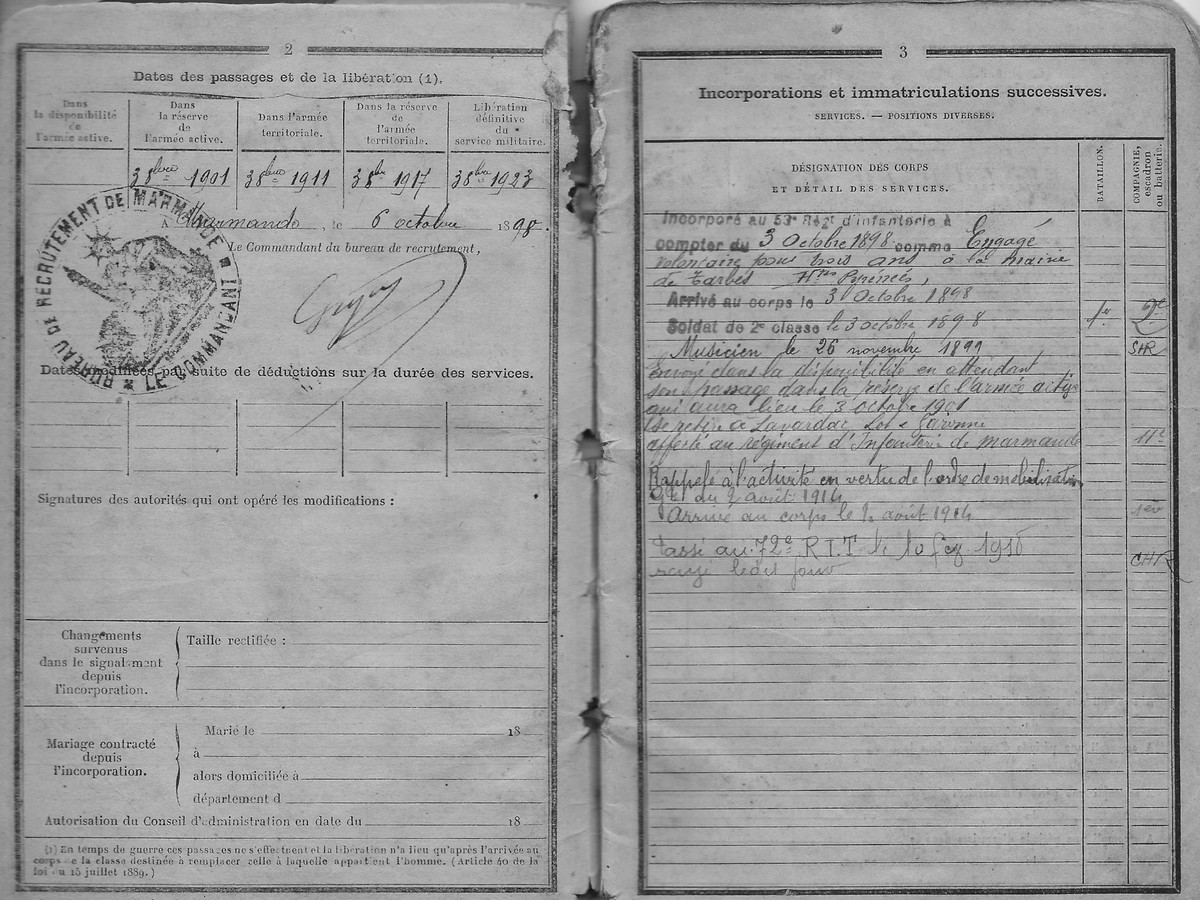 2
Dates des passages et de la libération (1).
Dans la disponibilité de l'armée active.
Dans la réserve de l'armée active.
Dans l'armée territoriale.
Dans la réserve de l'armée territoriale.
Libération définitive du service militaire.
3 8bre 1901
3 8bre 1911
3 8bre 1917
3 8bre 1923
A Marmande, le 6 octobre 1898.
Le Commandant du bureau de recrutement,
BUREAU DE RECRUTEMENT DE MARMANDE
★ LE COMMANDANT ★
Dates modifiées par suite de déductions sur la durée des services.
Signatures des autorités qui ont opéré les modifications :
Changements survenus dans le signalement depuis l'incorporation.
Taille rectifiée :
Mariage contracté depuis l'incorporation.
Marié le 18
à
alors domiciliée à
département d
Autorisation du Conseil d'administration en date du 18
(1) En temps de guerre ces passages ne s'effectuent et la libération n'a lieu qu'après l'arrivée au
corps de la classe destinée à remplacer celle à laquelle appartient l'homme. (Article 40 de la
loi du 15 juillet 1889.)
3
Incorporations et immatriculations successives.
SERVICES. — POSITIONS DIVERSES.
DÉSIGNATION DES CORPS
ET DÉTAIL DES SERVICES.
BATAILLON.
COMPAGNIE, escadron ou batterie.
Incorporé au 53e Régt d'infanterie à
compter du 3 Octobre 1898 comme Engagé
volontaire pour trois ans à la mairie
de Tarbes Htes Pyrénées,
Arrivé au corps le 3 Octobre 1898
Soldat de 2e classe le 3 octobre 1898 1er 2e
Musicien le 26 novembre 1899 SHR
Envoyé dans la disponibilité en attendant
son passage dans la réserve de l'armée active
qui aura lieu le 3 octobre 1901
Se retire à Lavardac, Lot & Garonne
affecté au régiment d'Infanterie de Marmande 11e
Rappelé à l'activité en vertu de l'ordre de mobilisation
Gal du 2 août 1914
Arrivé au corps le août 1914
Passé au 72e R.I.T le 10 1915 CHR
ledit jour